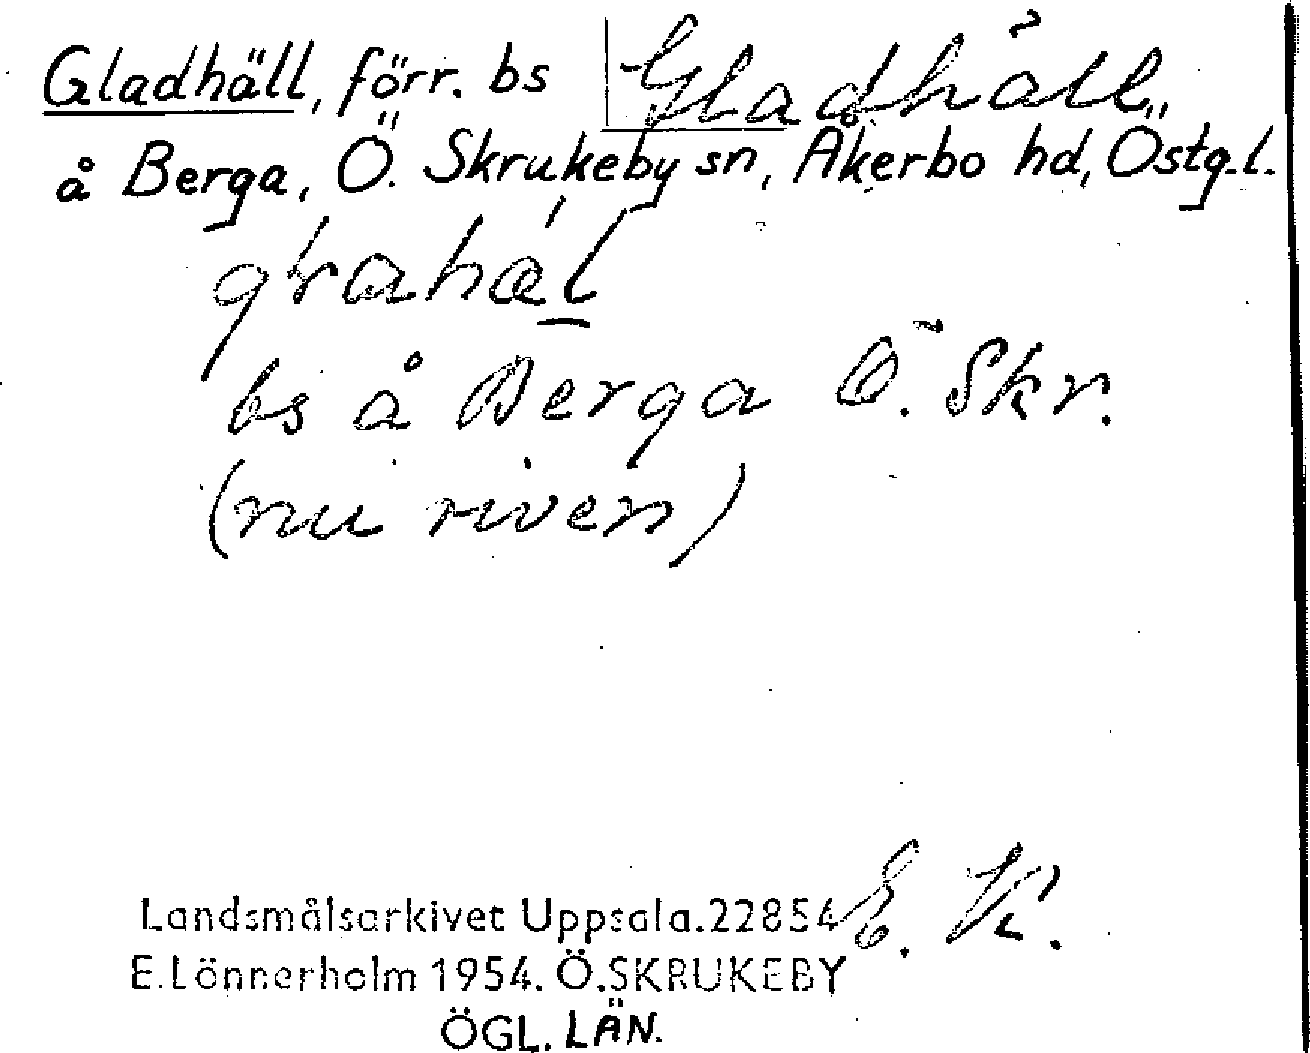 Gladhäll, förr. bs Gladhäll
å Berga, Ö. Skrukeby sn, Åkerbo hd, Östg.l.
bs å Berga Ö. Skr.
(nu riven)
E. K.
Landsmålsarkivet Uppsala.22854
E.Lönnerholm 1954. Ö.SKRUKEBY
ÖGL. LÄN.